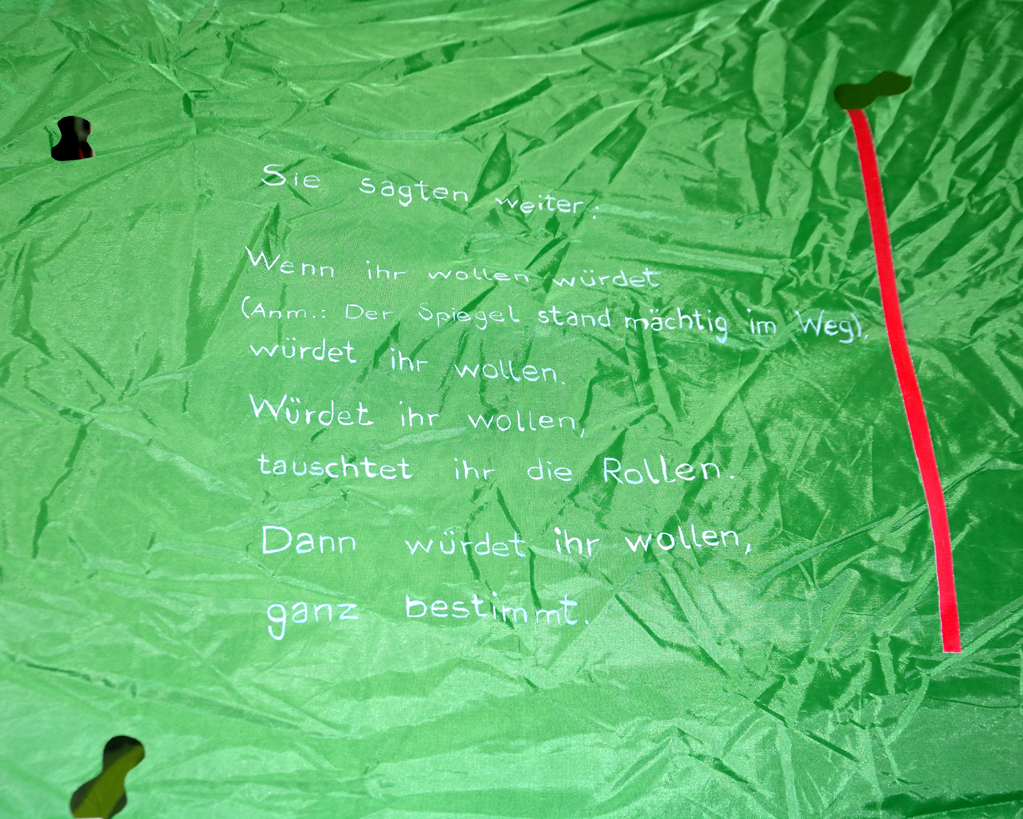 Sie sagten weiter:
Wenn ihr wollen würdet
(Anm.: Der Spiegel stand mächtig im Weg),
würdet ihr wollen.
Würdet ihr wollen,
tauschtet ihr die Rollen.
Dann würdet ihr wollen,
ganz bestimmt.